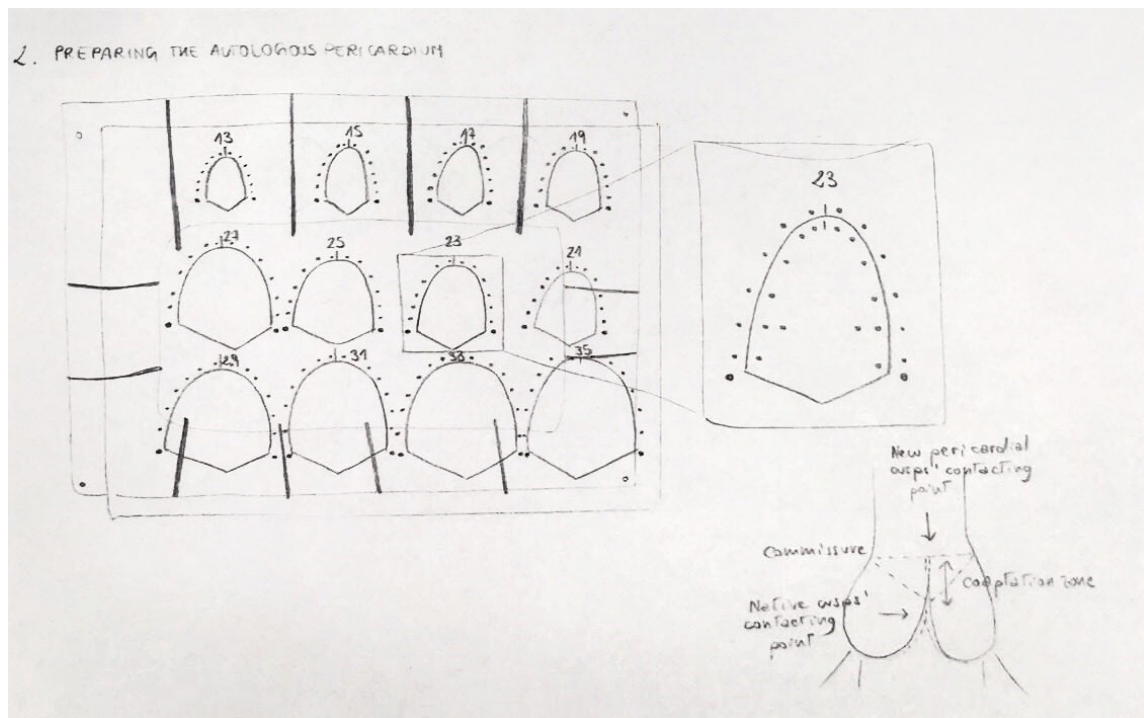 2. PREPARING THE AUTOLOGOUS PERICARDIUM
13 15 17 19
27 25 23 21
29 31 33 35
23
New pericardial
cusps' contacting
point
Commissure
Coaptation zone
Native cusps'
contacting
point